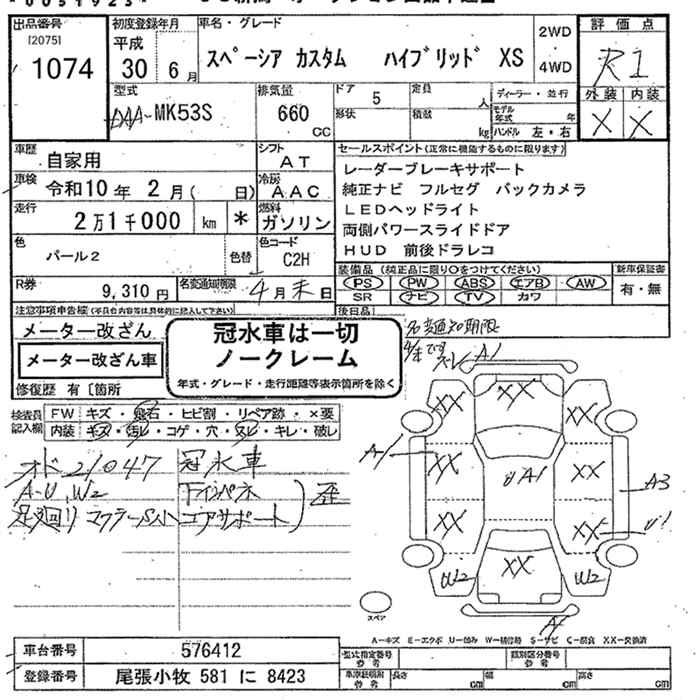 出品番号
[2075]
1074
初度登録年月
平成
30年 6月
車名・グレード
スペーシア カスタム ハイブリッド XS
2WD
4WD
評価点
R1
外装 内装
X X
型式
DAA-MK53S
排気量
660
CC
ドア
5
形状
定員
人
積載
kg
ディーラー・並行
モデル年式
年
ハンドル 左・右
車歴
自家用
シフト
AT
車検
令和10年 2月( 日)
冷房
AAC
走行
2万1千000 km *
燃料
ガソリン
色
パール2
色替
色コード
C2H
R券
9,310円
名変通知期限
4月末日
セールスポイント(正常に機能するものに限ります)
レーダーブレーキサポート
純正ナビ フルセグ バックカメラ
LEDヘッドライト
両側パワースライドドア
HUD 前後ドラレコ
装備品(純正品に限り○をつけてください)
PS PW ABS エアB AW
SR ナビ TV カワ
新車保証書
有・無
後日品
注意事項申告欄
メーター改ざん
メーター改ざん車
修復歴 有〔箇所
冠水車は一切
ノークレーム
年式・グレード・走行距離等表示箇所を除く
名義通知期限
検査員記入欄
FW キズ・飛石・ヒビ割・リペア跡・×要
内装 キズ・汚レ・コゲ・穴・スレ・キレ・破レ
オド 21047 冠水車
A-U, W2 下インパネ
足廻り マフラーSハ コアサポート 歪
A1
XX XX XX
A1 XX UA1 XX A3
XX XX U1
W2 XX W2
スペア
A
A-キズ E-エクボ U-凹み W-補修跡 S-サビ C-腐食 XX-交換済
車台番号
576412
登録番号
尾張小牧 581 に 8423
型式指定番号
参考
類別区分番号
参考
車庫証明用
参考
長さ cm 幅 cm 高さ cm